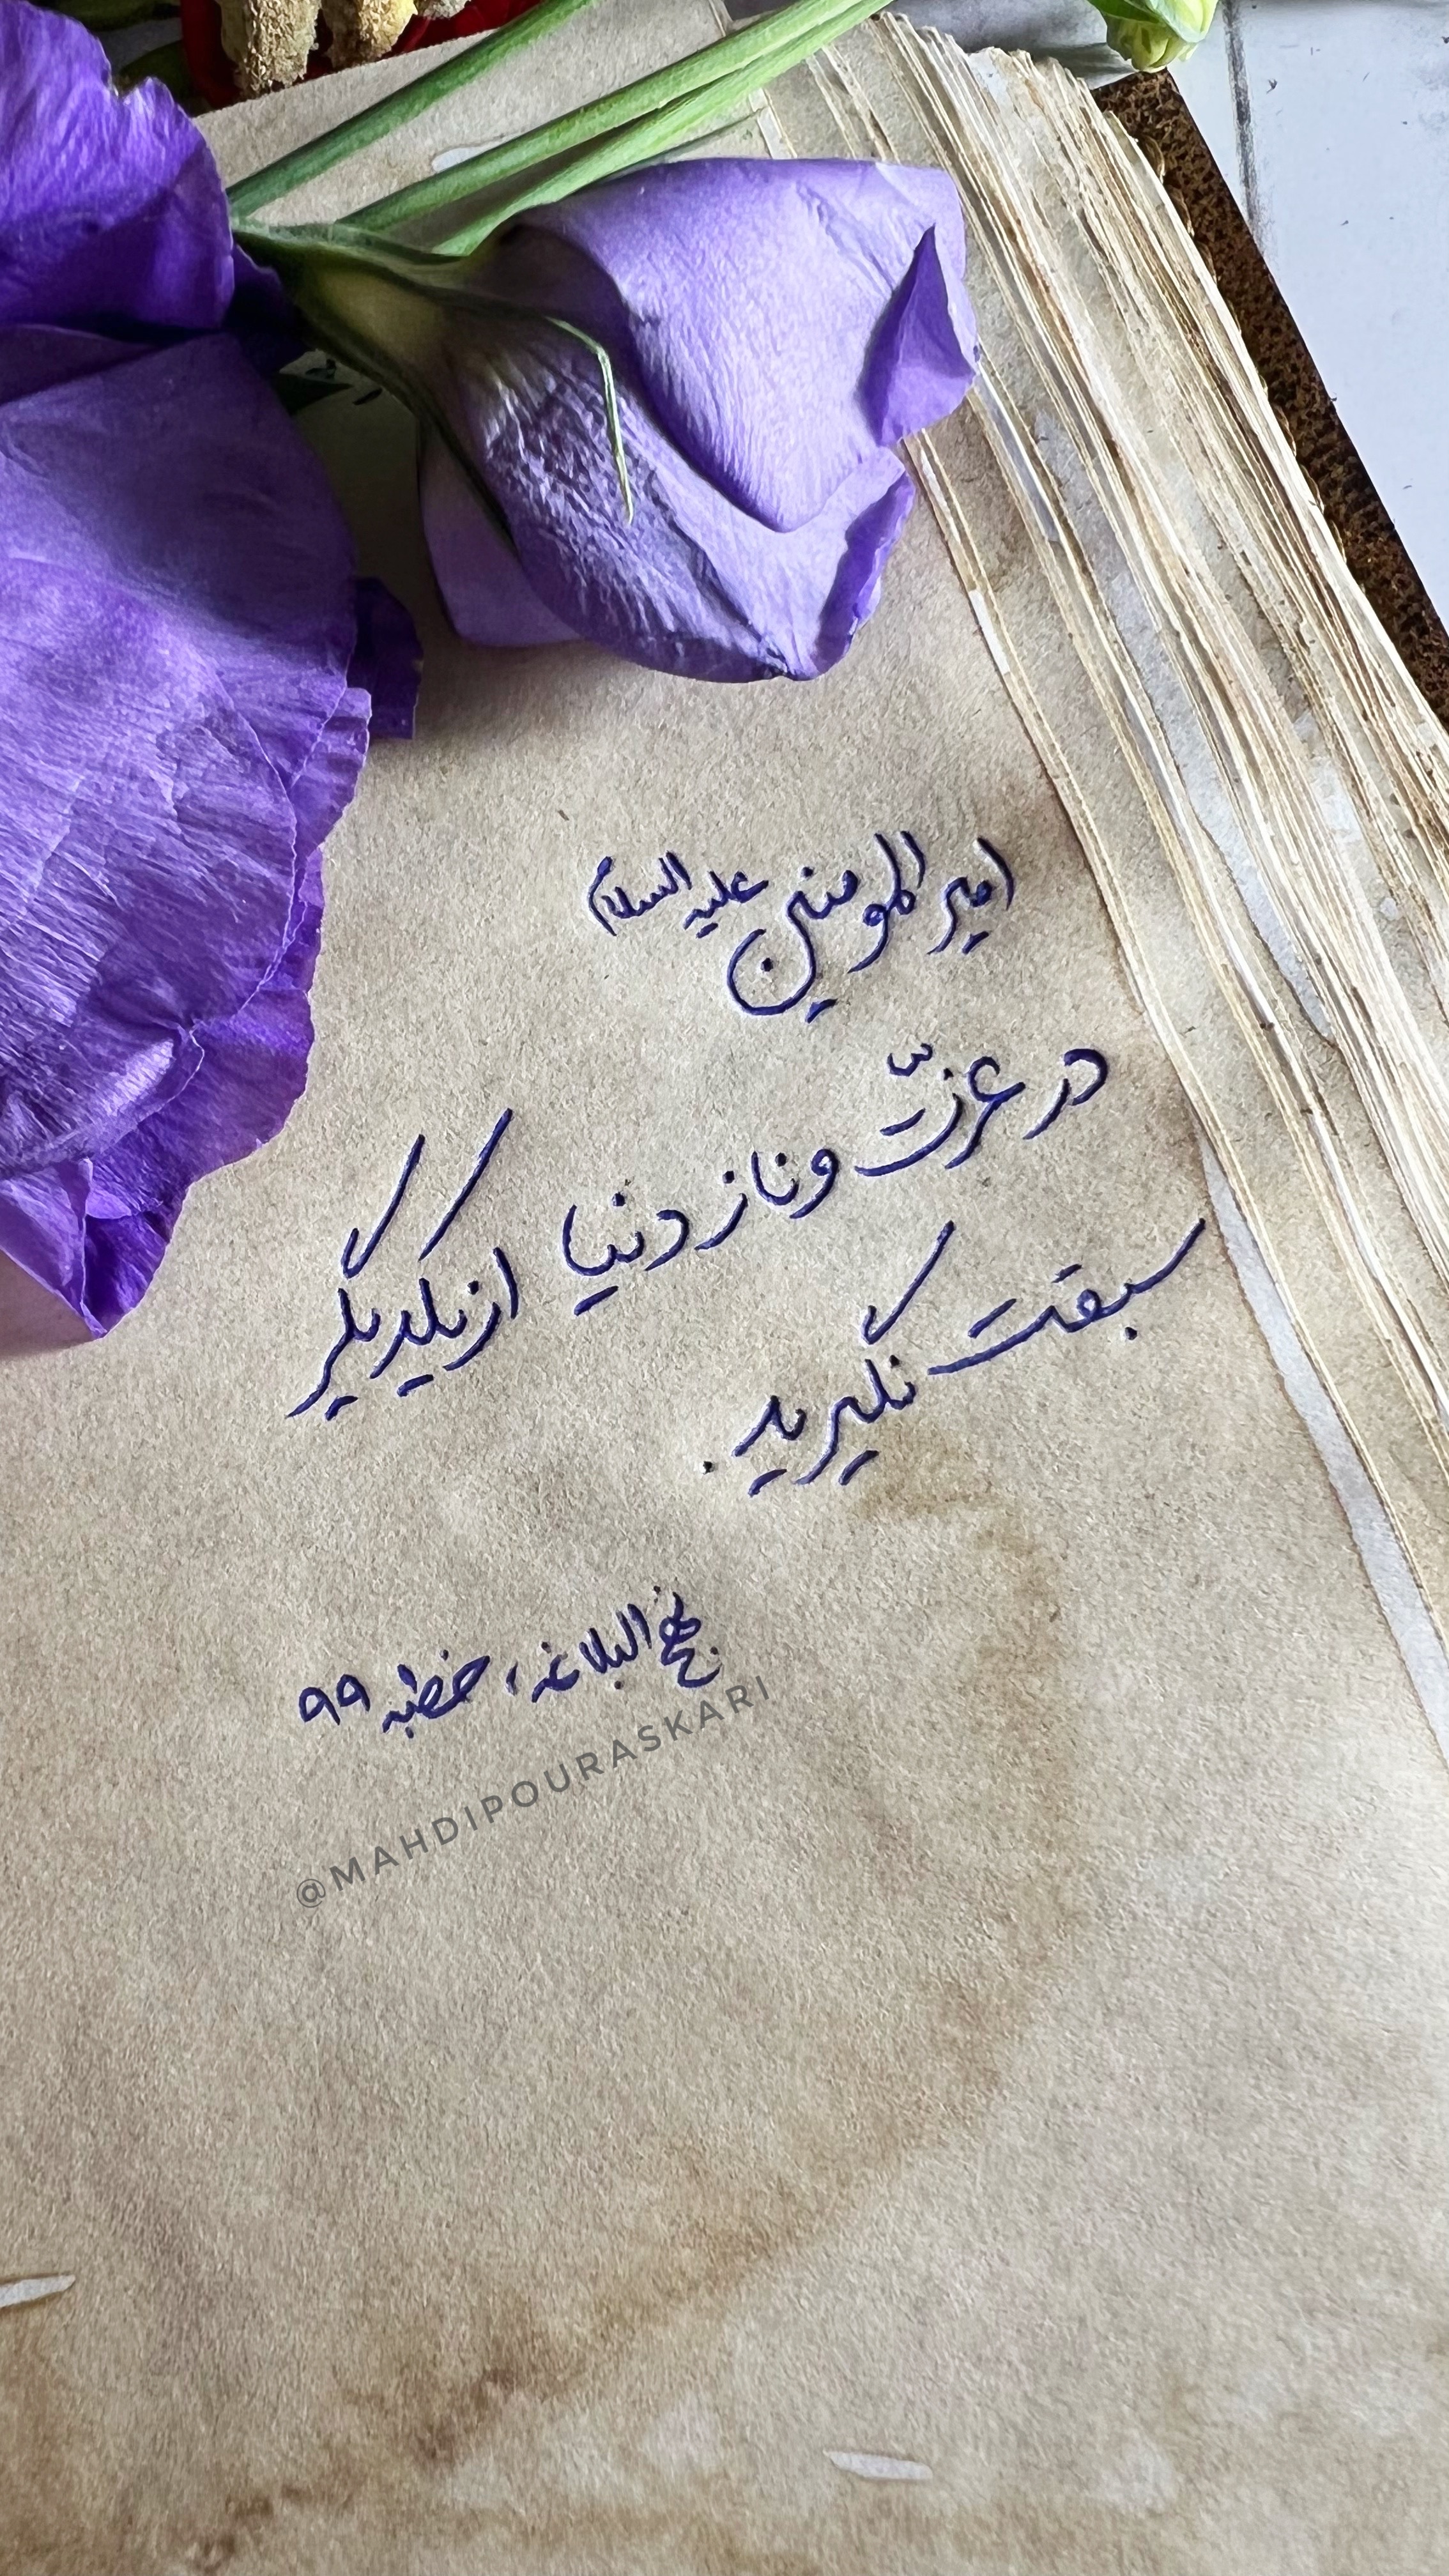 امیر المومنین علیه السلام
در عزّت و ناز دنیا از یکدیگر
سبقت نگیرید.
نهج البلاغه، خطبه ۹۹
@MAHDIPOURASKARI